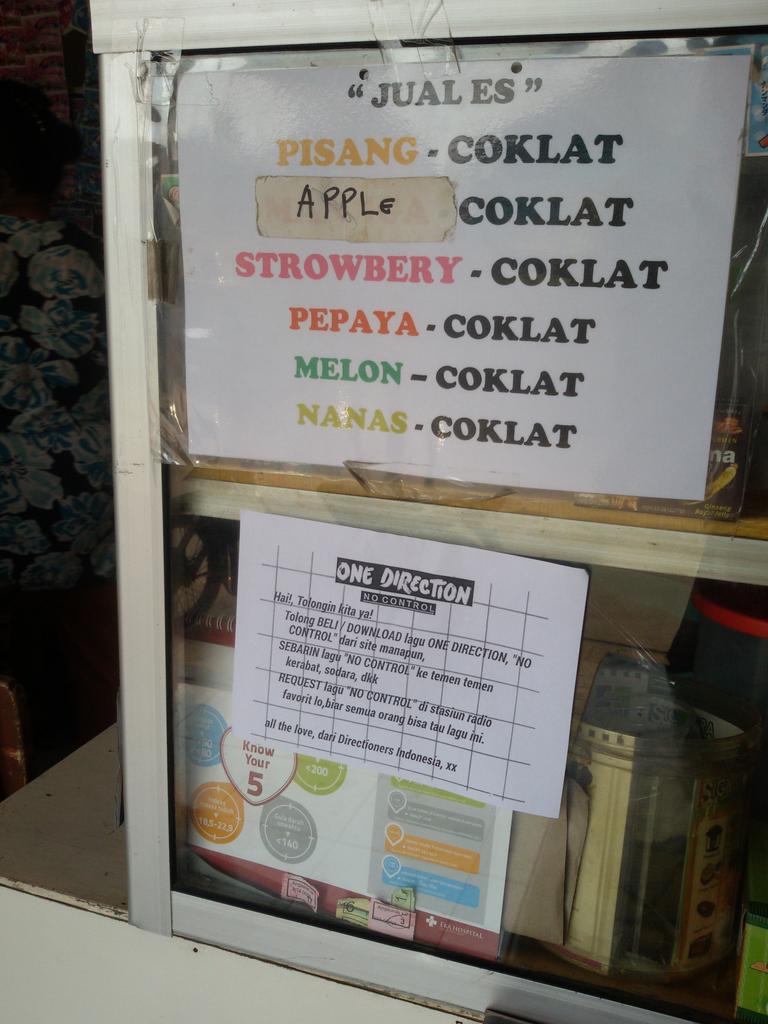 “JUAL ES”
PISANG - COKLAT
APPLE COKLAT
STROWBERY - COKLAT
PEPAYA - COKLAT
MELON – COKLAT
NANAS - COKLAT
na
ONE DIRECTION
NO CONTROL
Hai!, Tolongin kita ya!
Tolong BELI / DOWNLOAD lagu ONE DIRECTION, "NO
CONTROL" dari site manapun,
SEBARIN lagu "NO CONTROL" ke temen temen
kerabat, sodara, dkk
REQUEST lagu "NO CONTROL" di stasiun radio
favorit lo,biar semua orang bisa tau lagu ini.
all the love, dari Directioners Indonesia, xx
Know
Your
5
<200
18,5-22,9
<140